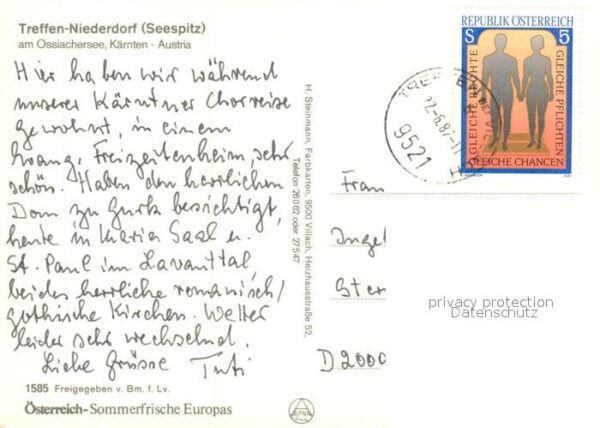 Treffen-Niederdorf (Seespitz)
am Ossiachersee, Kärnten - Austria
Hier haben wir während
unserer Kärntner Chorreise
gewohnt, in einem
Evang. Freizeitenheim, sehr
schön. Haben den herrlichen
Dom zu Gurk besichtigt,
heute in Maria Saal u.
St. Paul im Lavanttal
beides herrliche romanisch/
gothische Kirchen. Wetter
leider sehr wechselnd.
Liebe Grüsse Tuti
1585 Freigegeben v. Bm. f. Lv.
Österreich-Sommerfrische Europas
H. Steinmann, Farbkarten, 9500 Villach, Heizhausstraße 52,
Telefon 26062 oder 27547
REPUBLIK ÖSTERREICH
S 5
GLEICHE RECHTE
GLEICHE PFLICHTEN
GLEICHE CHANCEN
9521
Frau
Inge
Ster
D 2000
privacy protection
Datenschutz